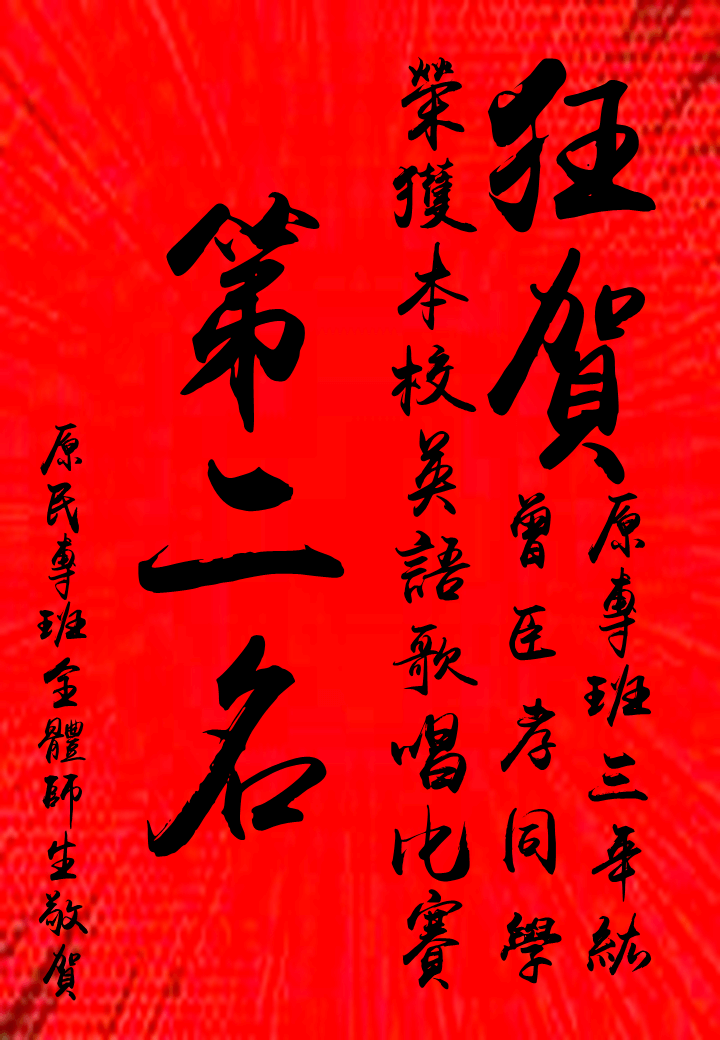 狂賀
原專班三年紘
曾臣孝同學
榮獲本校英語歌唱比賽
第二名
原民專班全體師生敬賀